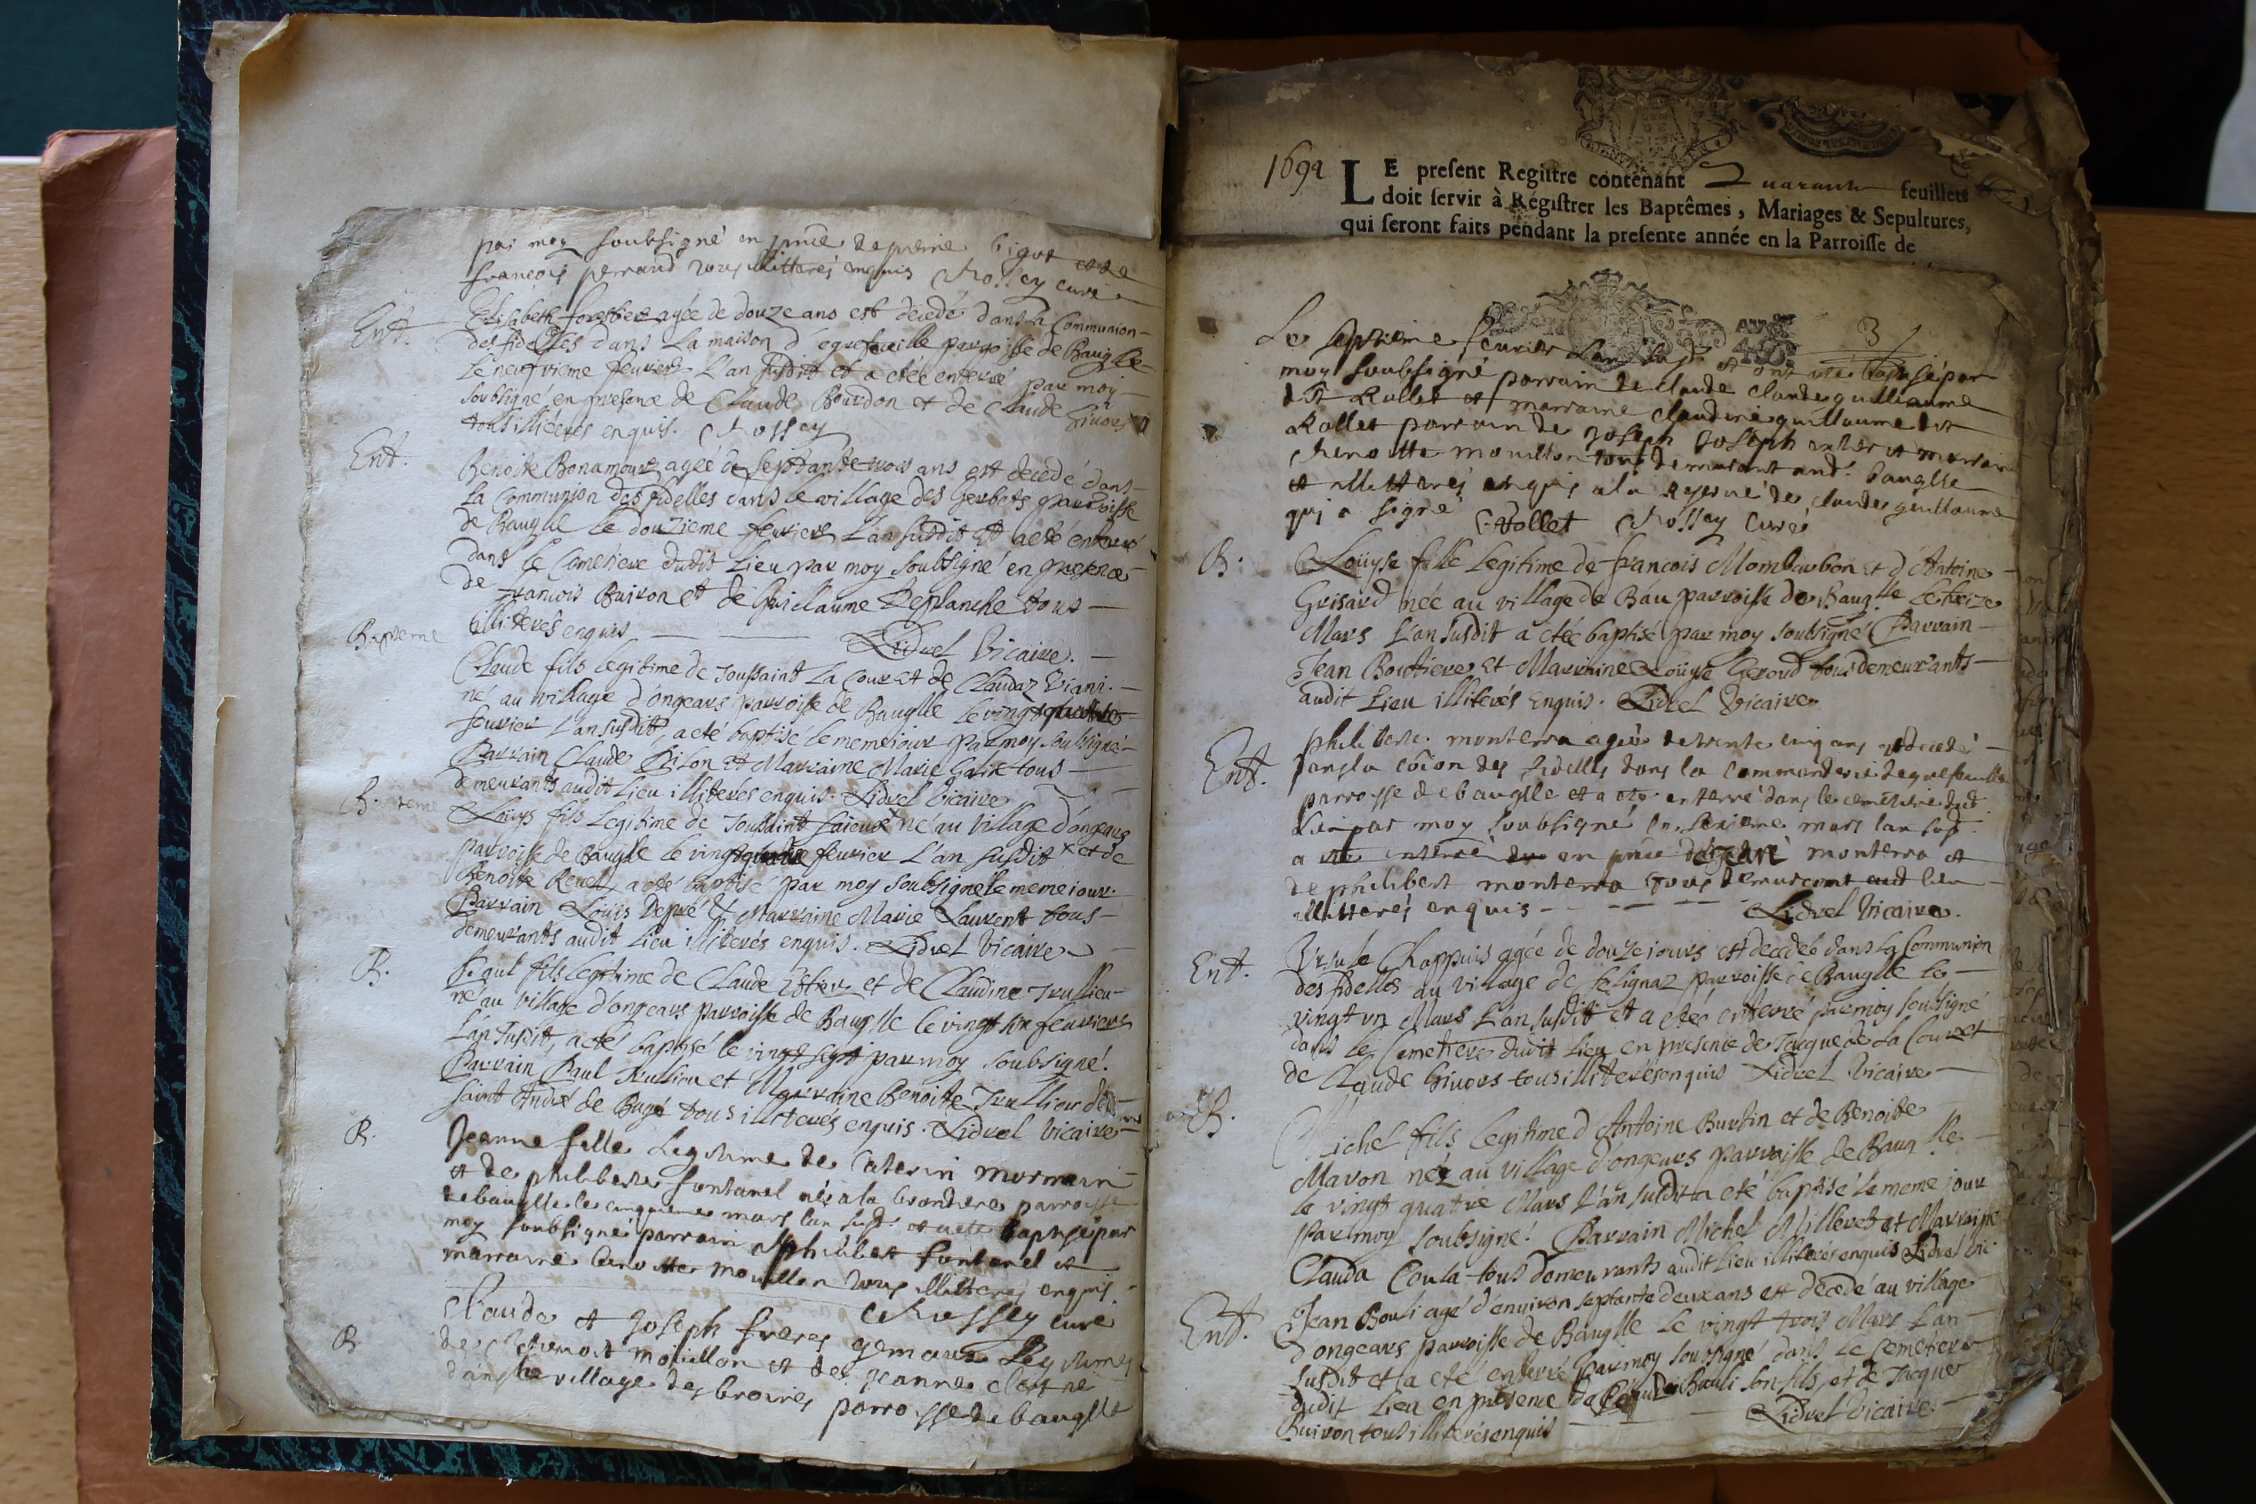 par moy soubsigné en pnce de pierre bigot et de
francois perraud tous illitterés enquis Chossey curé
Ent.
Elisabeth forestier agée de douze ans est decedé dans la Communion
des fidelles dans La maison d'egrefeuille parroisse de Baug lle
Le neufvieme feuvrier L'an susdit et a etée enterré par moy
soubsigné en presence de Claude Bourdon et de Claude Givors
tous illiterés enquis. Chossey
Ent.
Benoite Bonamour agée de septante trois ans est decedé dans
La Communion des fidelles dans le village des Gerbets parroisse
de Bauglle Le douzieme feuvrier L'an susdit Et a eté enterré
dans le Cemetiere dudit Lieu par moy soubsigné en presence
de francois Buiron et de Guiclaume Deplanche tous
illiterés enquis Lidrel Vicaire.
Bapteme
Claude fils legitime de Toussaint La Cour et de Claudaz Viani.
né au village d'ongears parroisse de Bauglle le vingt quattre
feuvrier L'an susdit, a eté baptisé le meme iour par moy soubsigné
Parrain Claude Pilon et Marraine Marie Galix tous
demeurants audit Lieu illiteres enquis. Lidrel Vicaire
B.
Louys fils Legitime de Toussaint né au village d'ongears
parroisse de Bauglle le vingt feuvrier L'an susdit x et de
Benoite Revel a eté baptisé par moy soubsigné le meme iour.
Parrain Louis Depré & Marraine Marie Laurent tous
demeurants audit Lieu illiterés enquis. Lidrel Vicaire
B.
fils legitime de Claude et de Claudine Trullieu
né au village d'ongears parroisse de Bauglle le vingt six feuvrier
L'an susdit, a eté baptisé le vingt sept par moy soubsigné.
Parrain Paul Trullieu et Marraine Benoite Trullieu de
saint André de Bagé tous illiterés enquis. Lidrel Vicaire
B.
Jeanne fille Legitime de Caterin mormain
et de philiberte fontanel née a la brondiere parroisse
de bauglle le cinquieme mars lan susd. et a eté baptisé par
moy soubsigné parrain philibert fontanel et
marraine benoitte mouillon tous illitterés enquis.
Chossey curé
B
Claude et Joseph freres gemeaux Legitimes
de Benoit mouillon et de Jeanne
dans le village des broires parroisse de bauglle
1692 LE present Registre contenant Quarante feuillets
doit servir à Régistrer les Baptêmes, Mariages & Sepultures,
qui seront faits pendant la presente année en la Parroisse de
3
Le septieme feuvrier lan susd. et ont eté baptisé par
moy soubsigné parrain de claude claude guillaume
dit Rollet et marraine claudine guillaume dit
Rollet parrain de Joseph Joseph et marraine
benoitte mouillon tous demurant aud. bauglle
et illitterés enquis a la reserve de claude guillaume
qui a signé C Rollet Chossey Curé
B.
Loüyse fille Legitime de francois Mombarbon et d'Antoine
Grisard née au village de Bau parroisse de Baug lle le treize
Mars L'an susdit a etée baptisé par moy soubsigné Parrain
Jean Bouttieres et Marraine Loüyse Geroud tous demeurants
audit Lieu illiterés enquis. Lidrel Vicaire
Ent.
philiberte monterra agée de trente cinq ans est decedé
dans la coion des fidelles dans la commanderie degrefeuille
parroisse de bauglle et a eté enterré dans le cemetiere dud.
Lieu par moy soubsigné le seizieme mars lan susd.
a eté enterré en pnce monterra et
de philibert monterra tous demurant aud lieu
illitterés enquis Lidrel Vicaire.
Ent.
Ursule Chappuis agée de douze iours est decedée dans la Communion
des fidelles au village de Selignaz parroisse de Bauglle le
vingt un Mars L'an susdit et a etée enterré par moy soubsigné
dans le Cemetiere dudit Lieu en presence de Jacque de La Cour et
de Claude Givors tous illiterés enquis Lidrel Vicaire
B.
Michel fils legitime d'Antoine Burtin et de Benoite
Maron né au village d'ongears parroisse de Baug lle
le vingt quatre Mars L'an susdit a eté baptisé le meme iour
Par moy soubsigné. Parrain Michel Milleret et Marraine
Clauda Coula tous demeurants audit Lieu illiterés enquis Lidrel Vic.
Ent.
Jean Bouli agé d'environ septante deux ans est decedé au village
d'ongears parroisse de Bauglle Le vingt trois Mars L'an
susdit et a eté enterré par moy soubsigné dans le Cemetiere
dudit Lieu en presence de Bouli son fils, et de Jacque
Buiron tous illiterés enquis Lidrel Vicaire.